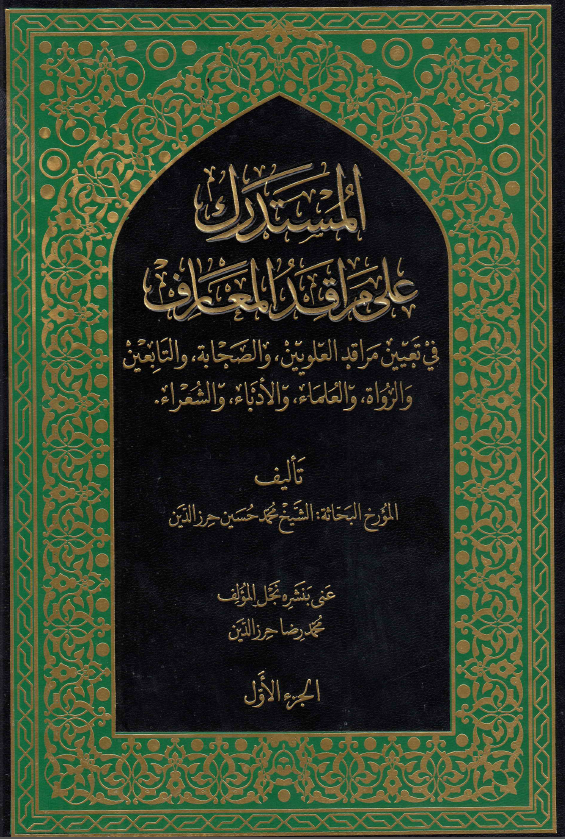 المُستَدرَك
على مَراقدُ المعَارف
في تعيين مَراقد العلويين، والصَحَابة، والتابعين
والرّواة، والعُلماء، والأدبَاء، والشعَراء.
تَأليف
المؤرخ البحاثة: الشيخ محمد حسين حرز الدّين
عنى بنشره نجل المؤلف
محمّد رضا حرز الدّين
الجزء الأوَّل